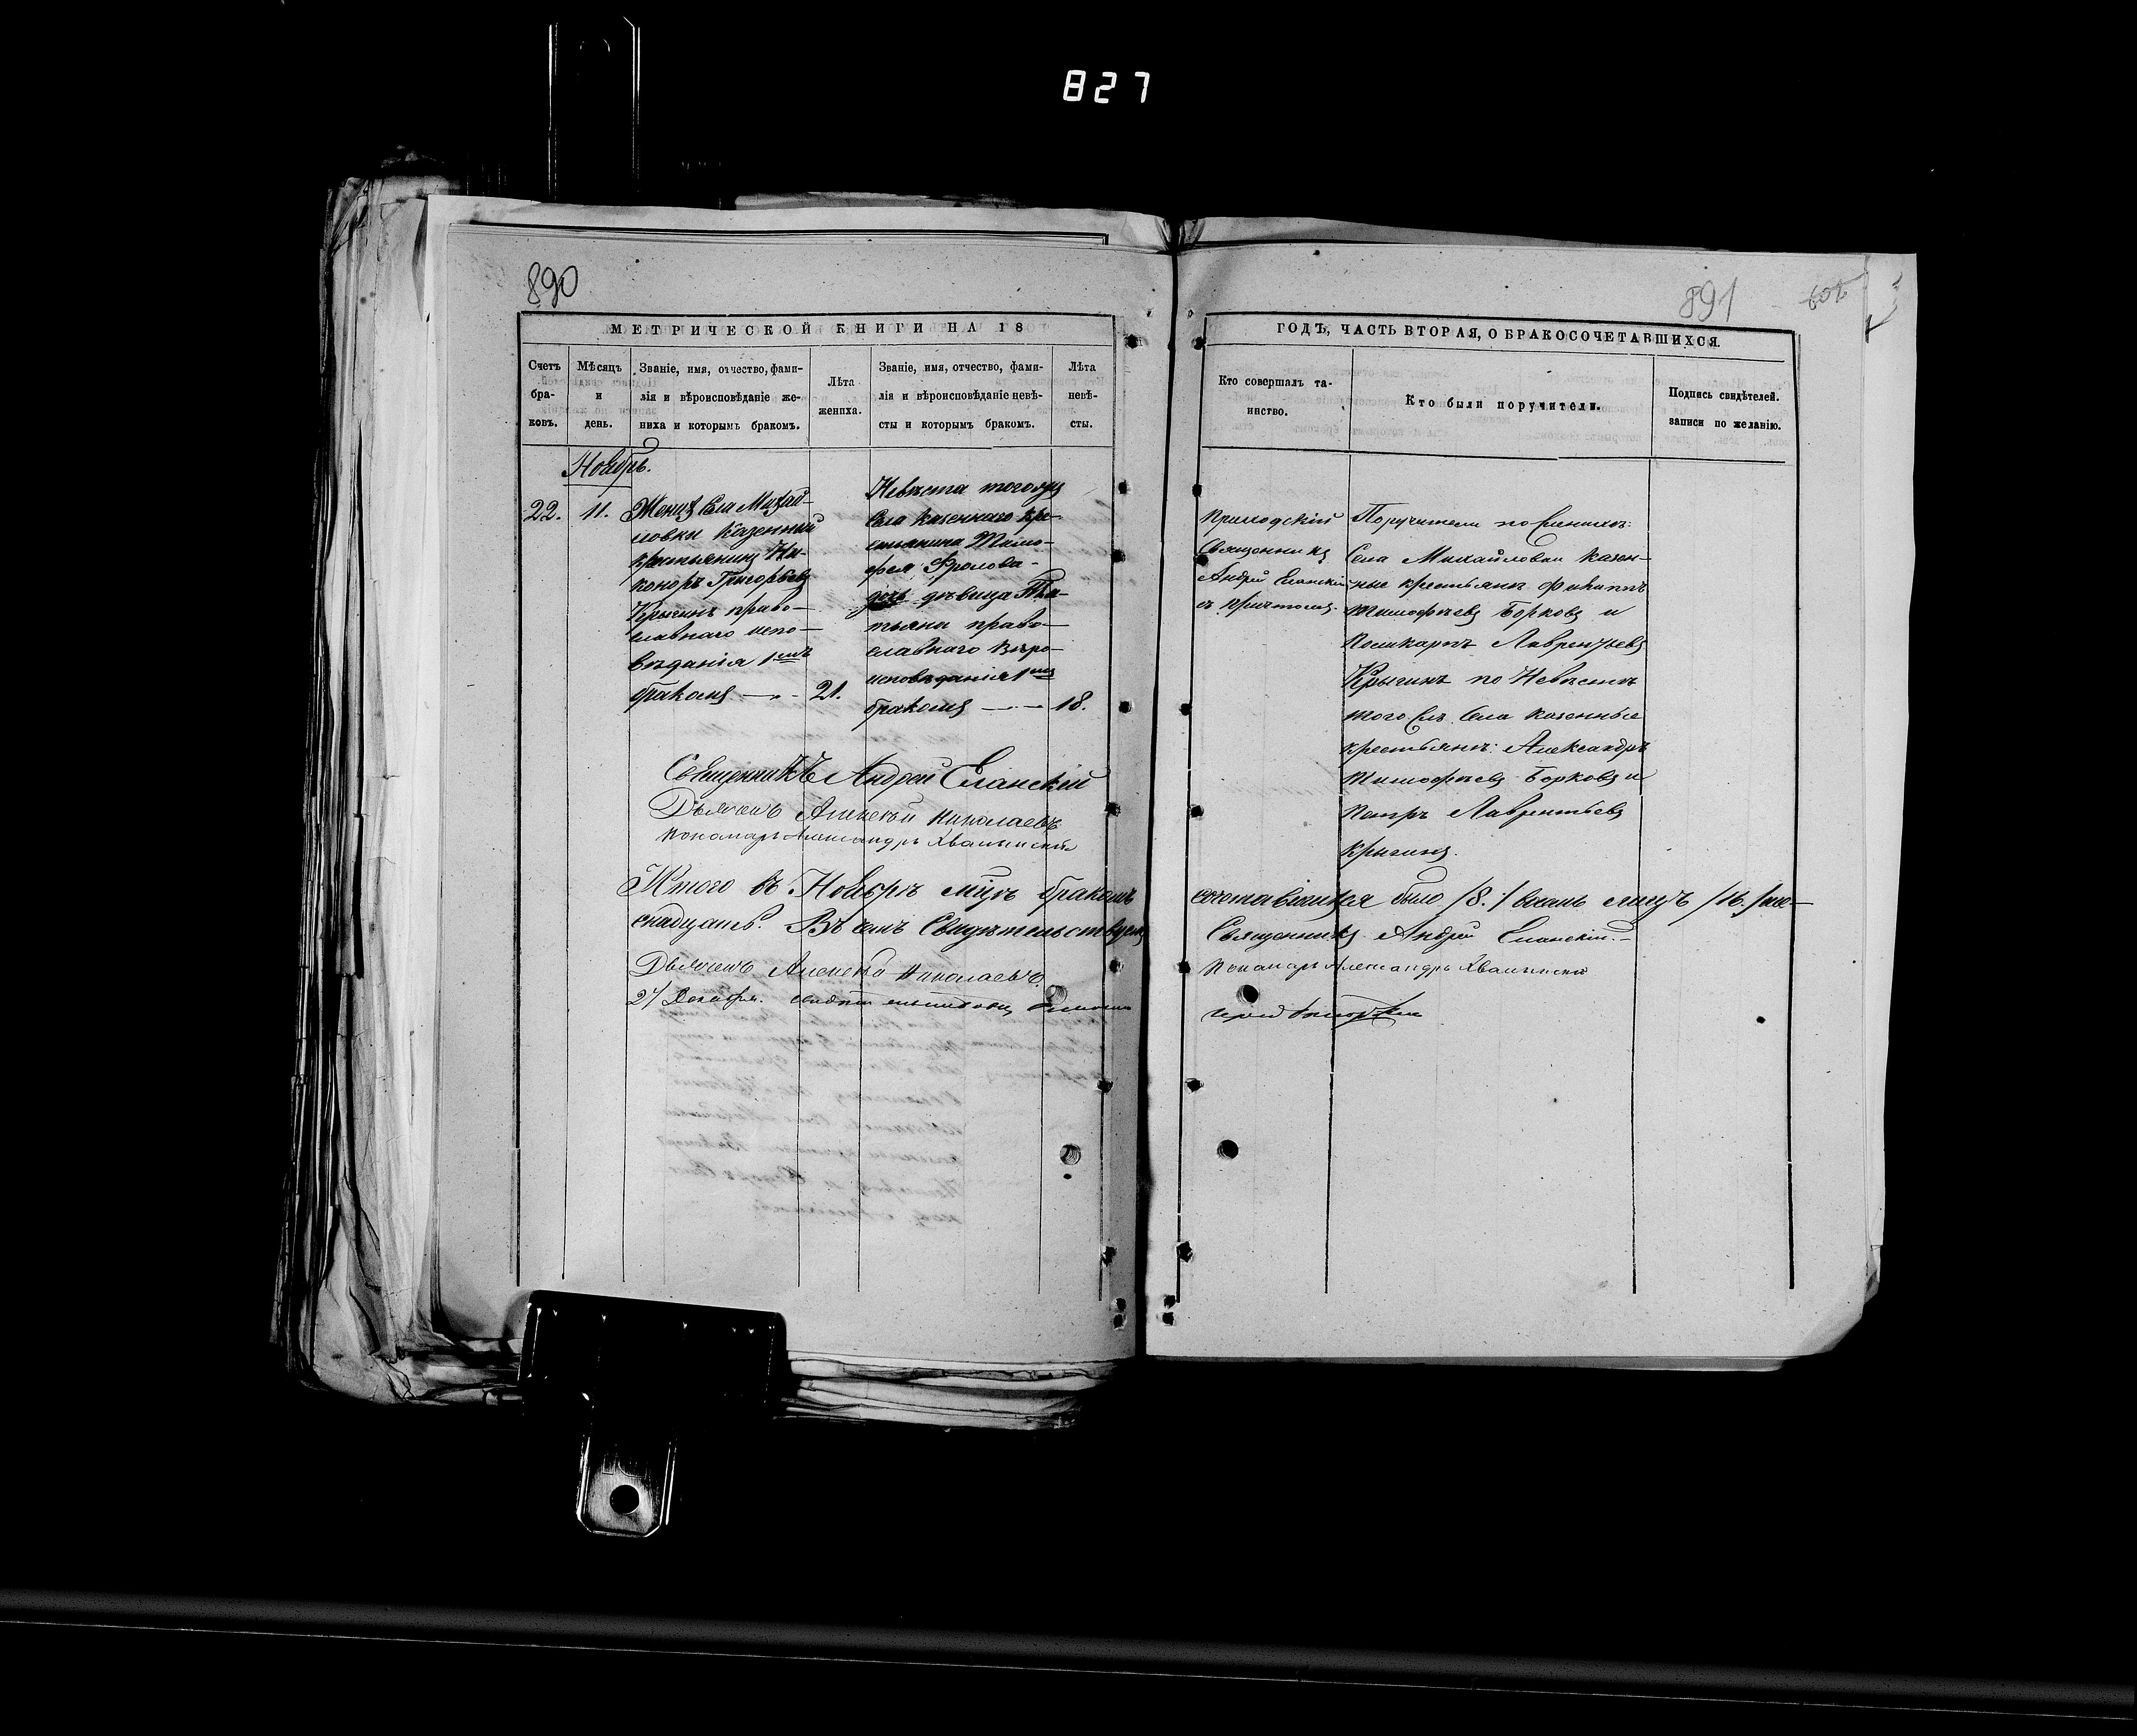 827
890
МЕТРИЧЕСКОЙ КНИГИ НА 18
Счетъ бра-ковъ.
Мѣсяцъ и день.
Званіе, имя, отчество, фами-
лія и вѣроисповѣданіе же-
ниха и которымъ бракомъ.
Лѣта жениха.
Званіе, имя, отчество, фами-
лія и вѣроисповѣданіе невѣ-
сты и которымъ бракомъ.
Лѣта невѣ-сты.
Ноябрь.
22.
11.
Женихъ Села Михай-
ловки Казенный
крестьянинъ Ни-
коноръ Григорьевъ
Крыгинъ право-
славнаго испо-
вѣданія 1мъ
бракомъ
21.
Невѣста тогожъ
Села казеннаго кре-
стьянина Тимо-
фея Фролова
дочь дѣвица Та-
тьяна право-
славнаго Вѣро-
исповѣданія 1мъ
бракомъ
18.
Священникъ Андрей Еланскій
Дьячекъ Алексѣй Николаевъ
Пономарь Александръ Хвалынскій
Итого въ Ноябрѣ мцѣ бракомъ
Въ чемъ Свидѣтельствуемъ
Дьячекъ Алексѣй Николаевъ
27 Декабря.
891
ГОДЪ, ЧАСТЬ ВТОРАЯ, О БРАКОСОЧЕТАВШИХСЯ.
Кто совершалъ та-
инство.
Кто были поручители.
Подпись свидѣтелей.
записи по желанію.
Приходскій
Священникъ
Андрей Еланскій
съ причтомъ.
Поручители по Женихѣ:
Села Михайловки казен-
ные крестьяне Филиппъ
Тимофѣевъ Борковъ и
Поликарпъ Лаврентьевъ
Крыгинъ по Невѣстѣ
того жъ Села казенные
крестьяне: Александръ
Тимофѣевъ Борковъ и
Петръ Лаврентьевъ
Крыгинъ.
сочетавшихся было /8./ восемь лицъ /16./ ше-
Священникъ Андрей Еланскій.
Пономарь Александръ Хвалынскій